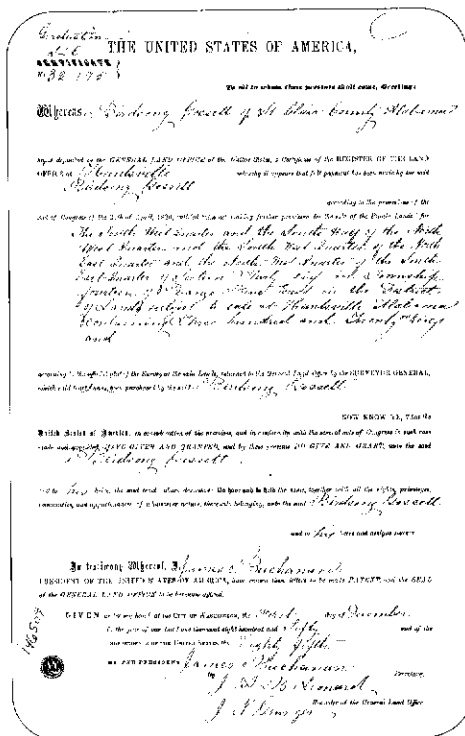 THE UNITED STATES OF AMERICA,
CERTIFICATE
To all to whom these presents shall come, Greeting:
Whereas Gossett of St Clair County Alabama
deposited in the GENERAL LAND OFFICE of the United States, a Certificate of the REGISTER OF THE LAND
OFFICE at Huntsville whereby it appears that full payment has been made by the said
Gossett
according to the provisions of the
Act of Congress of the 24th of April, 1820, entitled "An act making further provision for the sale of the Public Lands" for
The South West Quarter and the South Half of the North
West Quarter and the South West Quarter of the North
East Quarter and the North West Quarter of the South
East Quarter of Section Thirty six in Township
fourteen of Range East in the District
of Lands subject to sale at Huntsville Alabama
Containing Three hundred and Twenty
and
according to the official plat of the Survey of the said Lands, returned to the General Land Office by the SURVEYOR GENERAL,
which said tract has been purchased by the said Gossett
NOW KNOW YE, That the
United States of America, in consideration of the premises, and in conformity with the several acts of Congress in such case
made and provided, HAVE GIVEN AND GRANTED, and by these presents DO GIVE AND GRANT, unto the said
Gossett
and to his heirs, the said tract above described: To have and to hold the same, together with all the rights, privileges,
immunities, and appurtenances of whatsoever nature, thereunto belonging, unto the said Gossett
and to his heirs and assigns forever.
In testimony Whereof, I, James Buchanan
PRESIDENT OF THE UNITED STATES OF AMERICA, have caused these letters to be made PATENT, and the SEAL
of the GENERAL LAND OFFICE to be hereunto affixed.
GIVEN under my hand at the CITY OF WASHINGTON, the day of December
in the year of our Lord one thousand eight hundred and fifty and of the
INDEPENDENCE OF THE UNITED STATES the Eighty fifth
BY THE PRESIDENT: James Buchanan
By Secretary.
Recorder of the General Land Office